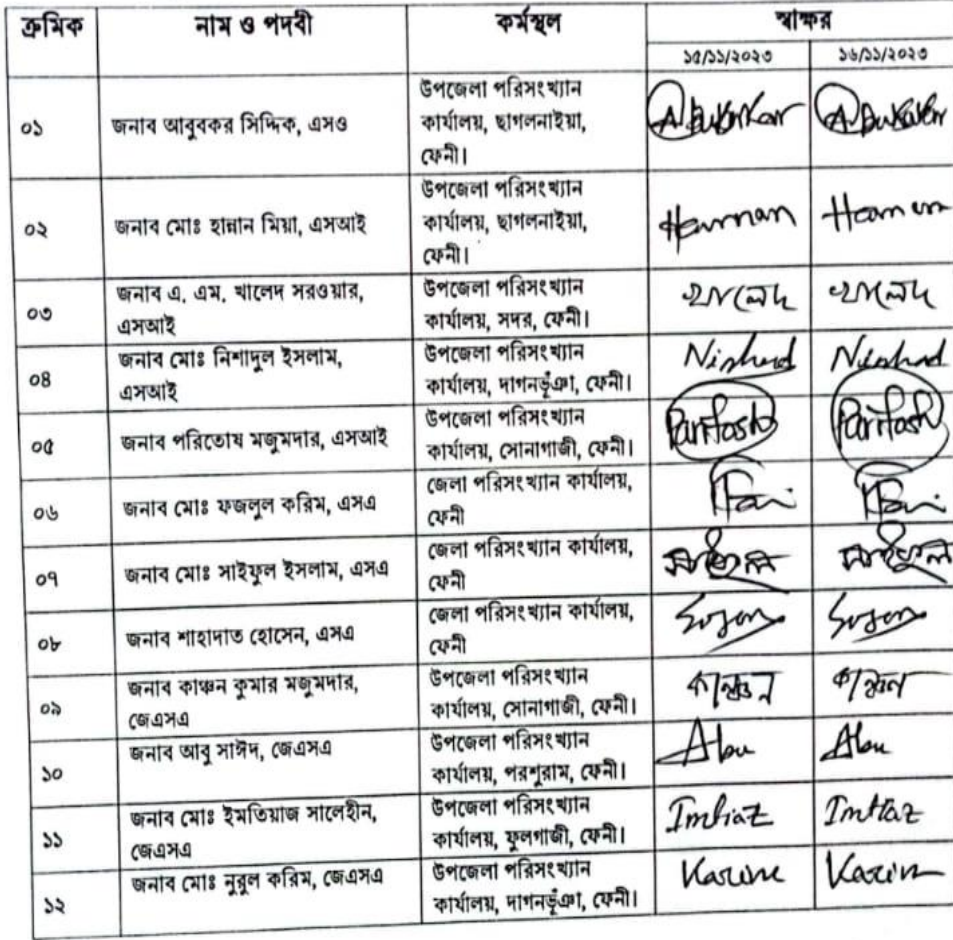 ক্রমিক নাম ও পদবী কর্মস্থল স্বাক্ষর
১৫/১১/২০২৩ ১৬/১১/২০২৩
০১ জনাব আবুবকর সিদ্দিক, এসও
উপজেলা পরিসংখ্যান
কার্যালয়, ছাগলনাইয়া,
ফেনী।
Abubakar Abubakar
০২ জনাব মোঃ হান্নান মিয়া, এসআই
উপজেলা পরিসংখ্যান
কার্যালয়, ছাগলনাইয়া,
ফেনী।
Hannan Hannan
০৩ জনাব এ. এম. খালেদ সরওয়ার,
এসআই
উপজেলা পরিসংখ্যান
কার্যালয়, সদর, ফেনী।
খালেদ খালেদ
০৪ জনাব মোঃ নিশাদুল ইসলাম,
এসআই
উপজেলা পরিসংখ্যান
কার্যালয়, দাগনভূঁঞা, ফেনী।
Nishad Nishad
০৫ জনাব পরিতোষ মজুমদার, এসআই
উপজেলা পরিসংখ্যান
কার্যালয়, সোনাগাজী, ফেনী।
Paritosh Paritosh
০৬ জনাব মোঃ ফজলুল করিম, এসএ
জেলা পরিসংখ্যান কার্যালয়,
ফেনী
০৭ জনাব মোঃ সাইফুল ইসলাম, এসএ
জেলা পরিসংখ্যান কার্যালয়,
ফেনী
সাইফুল সাইফুল
০৮ জনাব শাহাদাত হোসেন, এসএ
জেলা পরিসংখ্যান কার্যালয়,
ফেনী
০৯ জনাব কাঞ্চন কুমার মজুমদার,
জেএসএ
উপজেলা পরিসংখ্যান
কার্যালয়, সোনাগাজী, ফেনী।
কাঞ্চন কাঞ্চন
১০ জনাব আবু সাঈদ, জেএসএ
উপজেলা পরিসংখ্যান
কার্যালয়, পরশুরাম, ফেনী।
Abu Abu
১১ জনাব মোঃ ইমতিয়াজ সালেহীন,
জেএসএ
উপজেলা পরিসংখ্যান
কার্যালয়, ফুলগাজী, ফেনী।
Imtiaz Imtiaz
১২ জনাব মোঃ নুরুল করিম, জেএসএ
উপজেলা পরিসংখ্যান
কার্যালয়, দাগনভূঁঞা, ফেনী।
Karim Karim